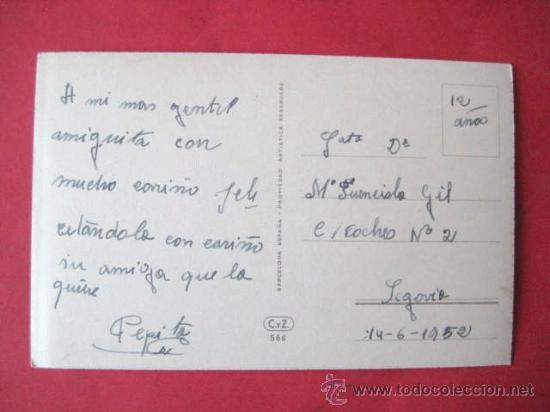 A mi mas gentil
amiguita con
mucho cariño feli
citándola con cariño
su amiga que la
quiere
Pepita
BARCELONA ESPAÑA - PROPIEDAD ARTISTICA RESERVADA
C.Y Z.
566
12
años
Srta Dª
Mª Fuencisla Gil
C/ Coches Nº 2
Segovia
14-6-1952
www.todocoleccion.net